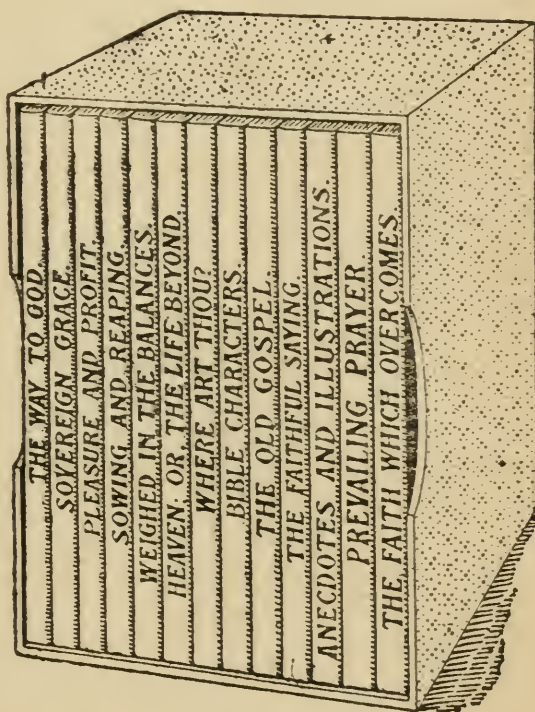 THE WAY TO GOD.
SOVEREIGN GRACE.
PLEASURE AND PROFIT.
SOWING AND REAPING.
WEIGHED IN THE BALANCES.
HEAVEN; OR, THE LIFE BEYOND.
WHERE ART THOU?
BIBLE CHARACTERS.
THE OLD GOSPEL.
THE FAITHFUL SAYING.
ANECDOTES AND ILLUSTRATIONS.
PREVAILING PRAYER
THE FAITH WHICH OVERCOMES.